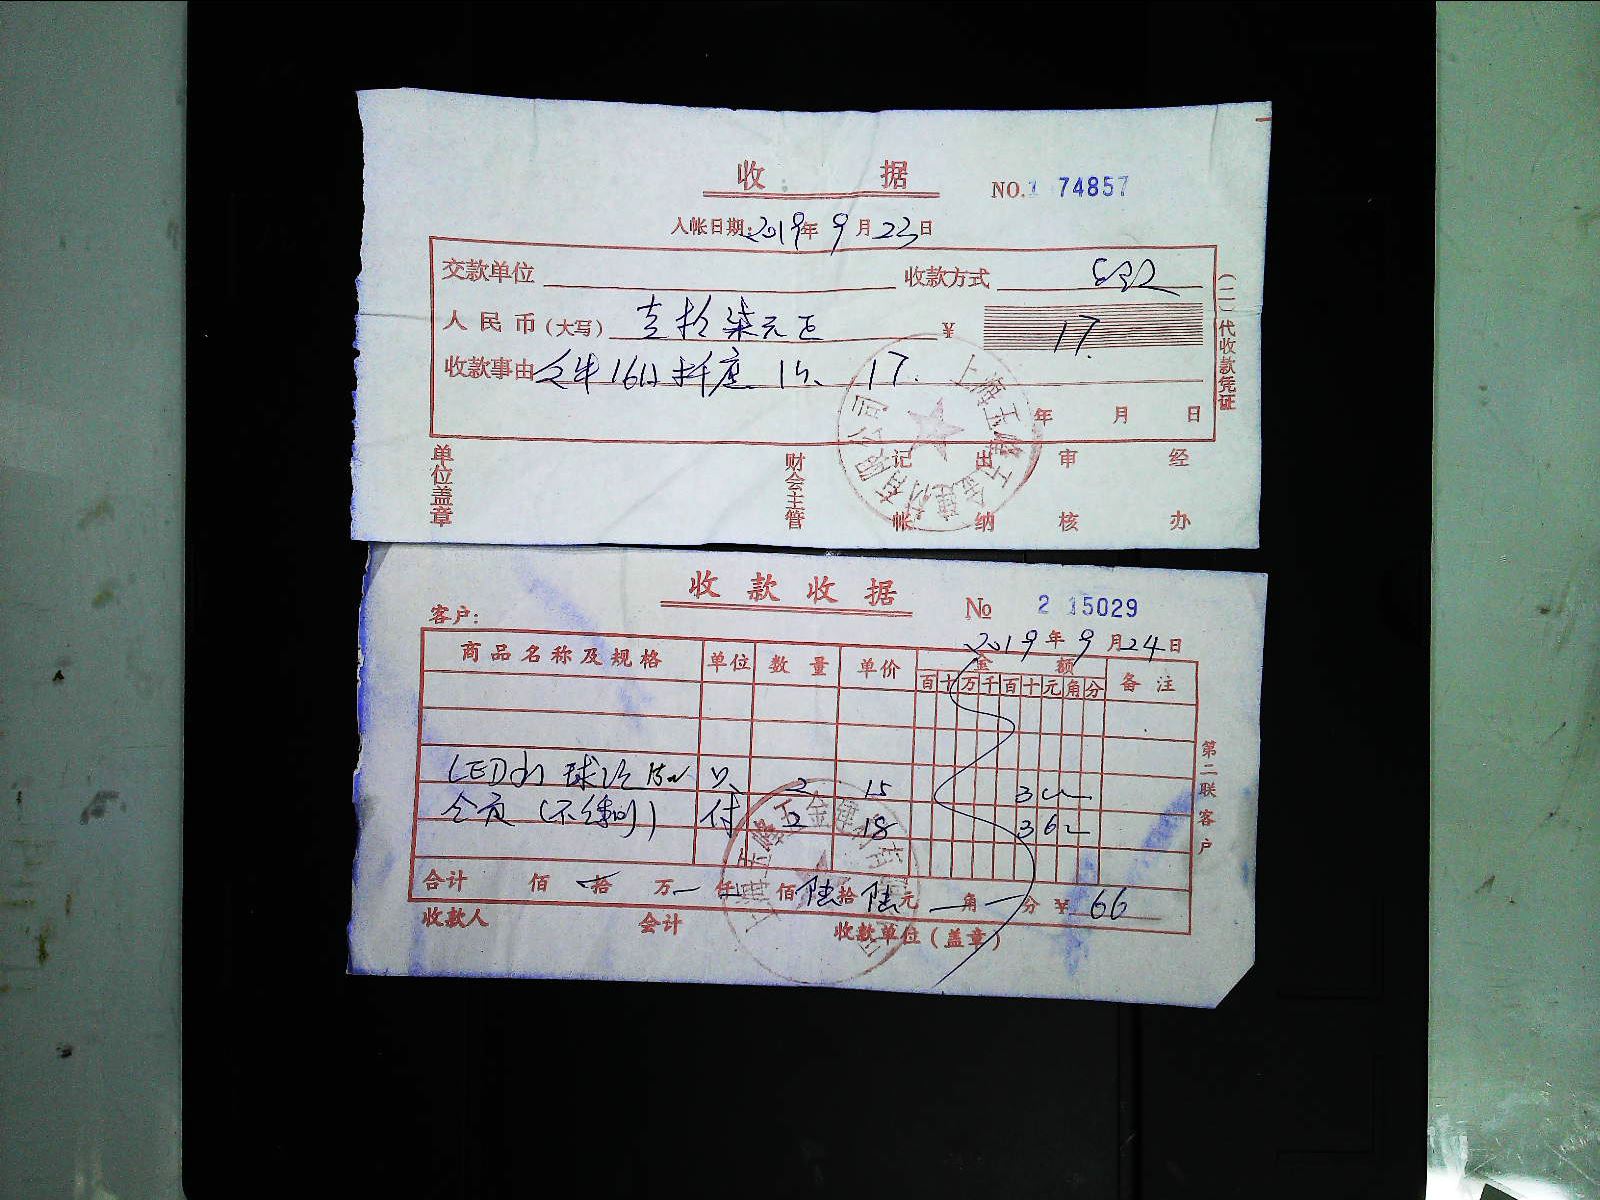 收 据
NO. 74857
入帐日期:2019年9月23日
交款单位 收款方式
人民币(大写) 壹拾柒元正 ¥ 17.
收款事由 1只 17.
年 月 日
(二)代收款凭证
单位盖章 财会主管 记帐 出纳 审核 经办
收款收据
№ 2 15029
客户:
2019年9月24日
商品名称及规格 单位 数量 单价 金额 备注
百十万千百十元角分
LED 球泡 15w 只 2 15 30
付 2 18 36
合计 佰 拾 万 仟 佰陆拾陆元 角 分 ¥ 66
收款人 会计 收款单位(盖章)
第二联客户